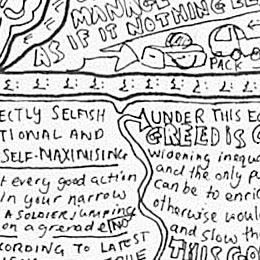 MANAGE
AS IF IT NOTHING
PACK
£: £: £: £: £: £: £:
ECTLY SELFISH
TIONAL AND
SELF-MAXIMISING
t every good action
in your narrow
A SOLDIER JUMPING
on a grenade (NO
CORDING TO LATEST
UNDER THIS
GREED IS
widening inequ
and the only p
can be to enri
otherwise woul
and slow th
THIS GO